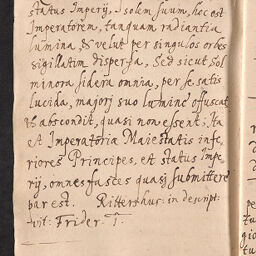 status Imperij, solem suum, hoc est
Imperatorem, tanquam radiantia
lumina, & velut per singulos orbes
sigillatim dispersa, Sed sicut Sol
minora sidera omnia, per se satis
lucida, majori suo lumine offuscat
& abscondit, quasi non essent: Ita
et Imperatoria Maiestatis infe,
riores Principes, et status Impe,
rij, omnes fasces quasi submittere
par est. Ritterhus: in descript:
vit: Frider. I.